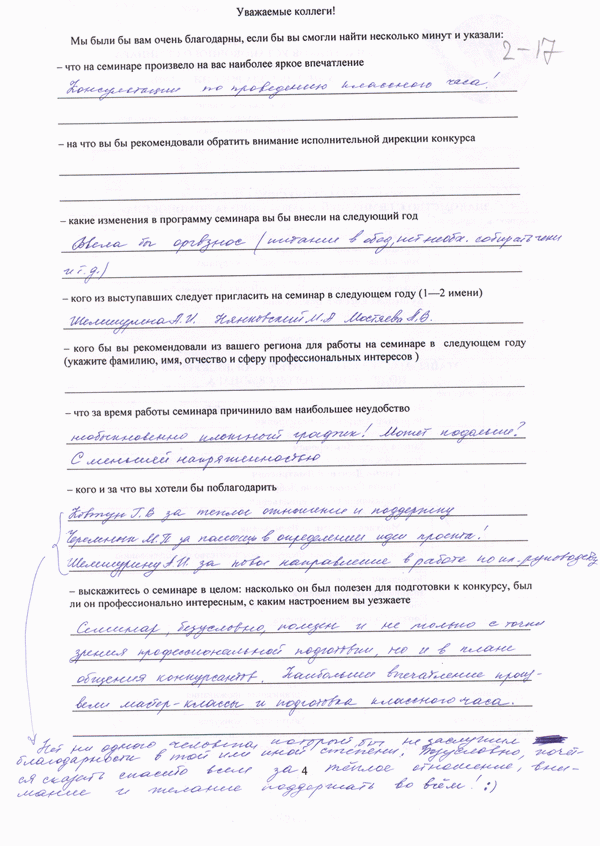 Уважаемые коллеги!
Мы были бы вам очень благодарны, если бы вы смогли найти несколько минут и указали:
2-17
– что на семинаре произвело на вас наиболее яркое впечатление
Консультации по проведению классного часа!
– на что вы бы рекомендовали обратить внимание исполнительной дирекции конкурса
– какие изменения в программу семинара вы бы внесли на следующий год
Ввела бы оргвзнос (питание в обед, нет необх. собирать чеки
и т.д.)
– кого из выступавших следует пригласить на семинар в следующем году (1—2 имени)
Шемшурина А.И. Нянковский М.А Мостяева Л.В.
– кого бы вы рекомендовали из вашего региона для работы на семинаре в следующем году
(укажите фамилию, имя, отчество и сферу профессиональных интересов )
– что за время работы семинара причинило вам наибольшее неудобство
необыкновенно плотный график! Может подольше?
С меньшей напряженностью
– кого и за что вы хотели бы поблагодарить
Ковтун Г.В за теплое отношение и поддержку
Черемных М.П за помощь в определении идеи проекта!
Шемшурину А.И. за новое направление в работе по кл. руководству
– выскажитесь о семинаре в целом: насколько он был полезен для подготовки к конкурсу, был
ли он профессионально интересным, с каким настроением вы уезжаете
Семинар, безусловно, полезен и не только с точки
зрения профессиональной подготовки, но и в плане
общения конкурсантов. Наибольшее впечатление произ-
вели мастер-классы и подготовка классного часа.
Нет ни одного человека, который бы не заслужил
благодарности в той или иной степени, безусловно, хочет-
ся сказать спасибо всем за тёплое отношение, вни-
4
мание и желание поддержать во всём! :)